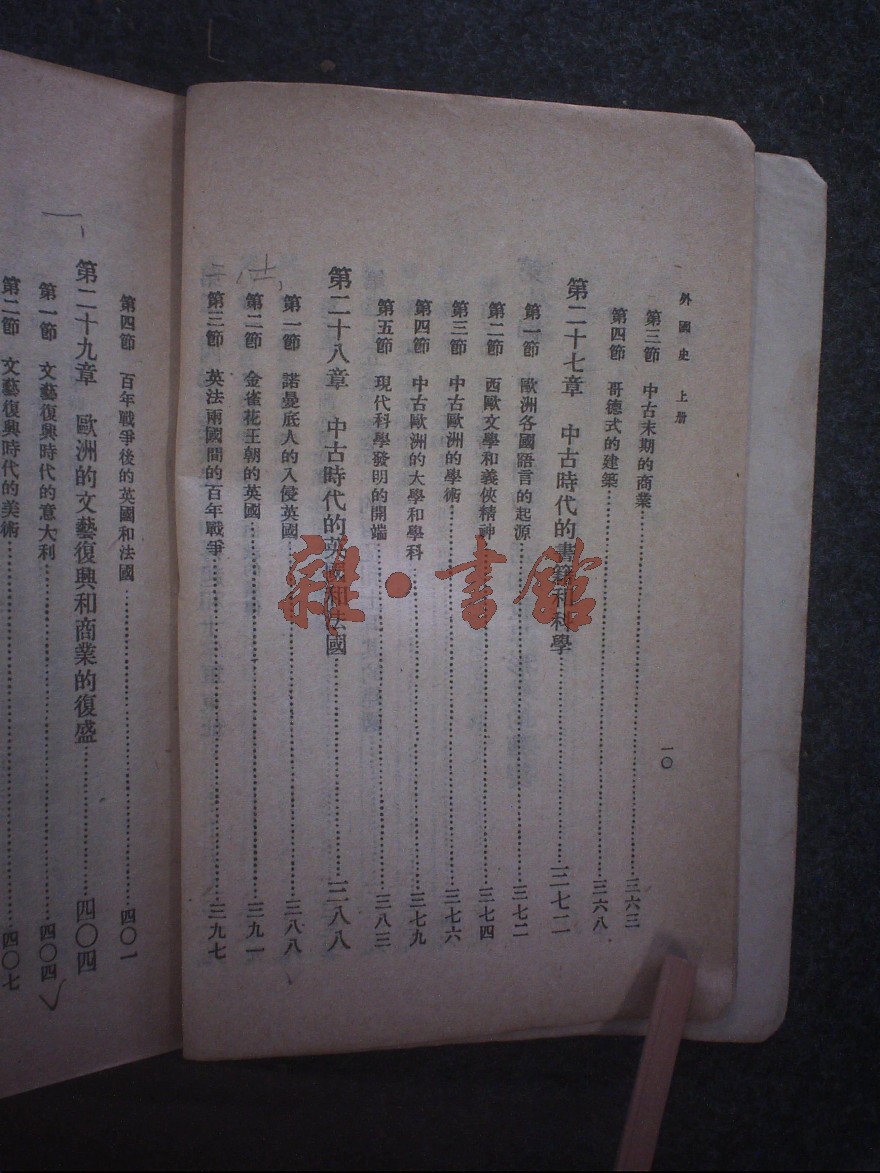 外國史 上册
一〇
第三節 中古末期的商業……三六三
第四節 哥德式的建築……三六八
第二十七章 中古時代的書籍和科學……三七二
第一節 歐洲各國語言的起源……三七二
第二節 西歐文學和義俠精神……三七四
第三節 中古歐洲的學術……三七六
第四節 中古歐洲的大學和學科……三七九
第五節 現代科學發明的開端……三八三
第二十八章 中古時代的英國和法國……三八八
第一節 諾曼底人的入侵英國……三八八
第二節 金雀花王朝的英國……三九一
第三節 英法兩國間的百年戰爭……三九七
第四節 百年戰爭後的英國和法國……四〇一
第二十九章 歐洲的文藝復興和商業的復盛……四〇四
第一節 文藝復興時代的意大利……四〇四
第二節 文藝復興時代的美術……四〇七
雜·書館